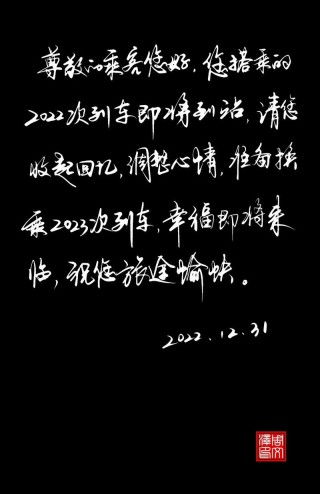 尊敬的乘客您好,您搭乘的
2022次列车即将到站,请您
收起回忆,调整心情,准备换
乘2023次列车,幸福即将来
临,祝您旅途愉快。
2022.12.31